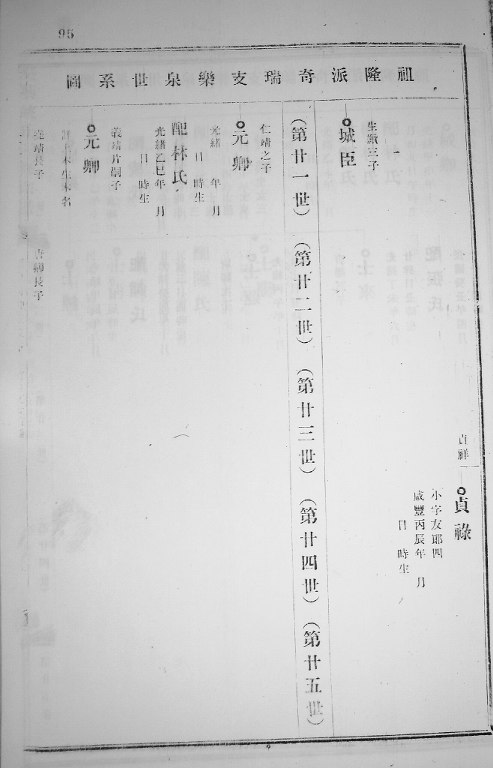 95
祖隆派奇瑞支樂泉世系圖
貞祥
貞祿
小字友郎四
咸豐丙辰年 月
日 時生
生 三子
城臣
(第廿一世)(第廿二世)(第廿三世)(第廿四世)(第廿五世)
仁靖之子
元卿
光緒 年 月
日 時生
配林氏
光緒乙巳年 月
日 時生
義靖片嗣子
元卿
本生本名
長子
長子